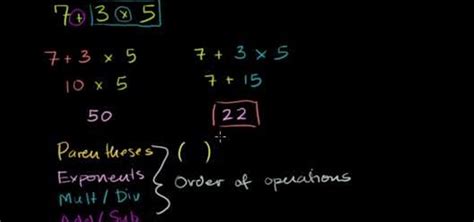 7 + 3 × 5
7 + 3 × 5
10 × 5
50
7 + 3 × 5
7 + 15
22
Parentheses ( )
Exponents
Order of operations
Mult / Div
Add / Sub